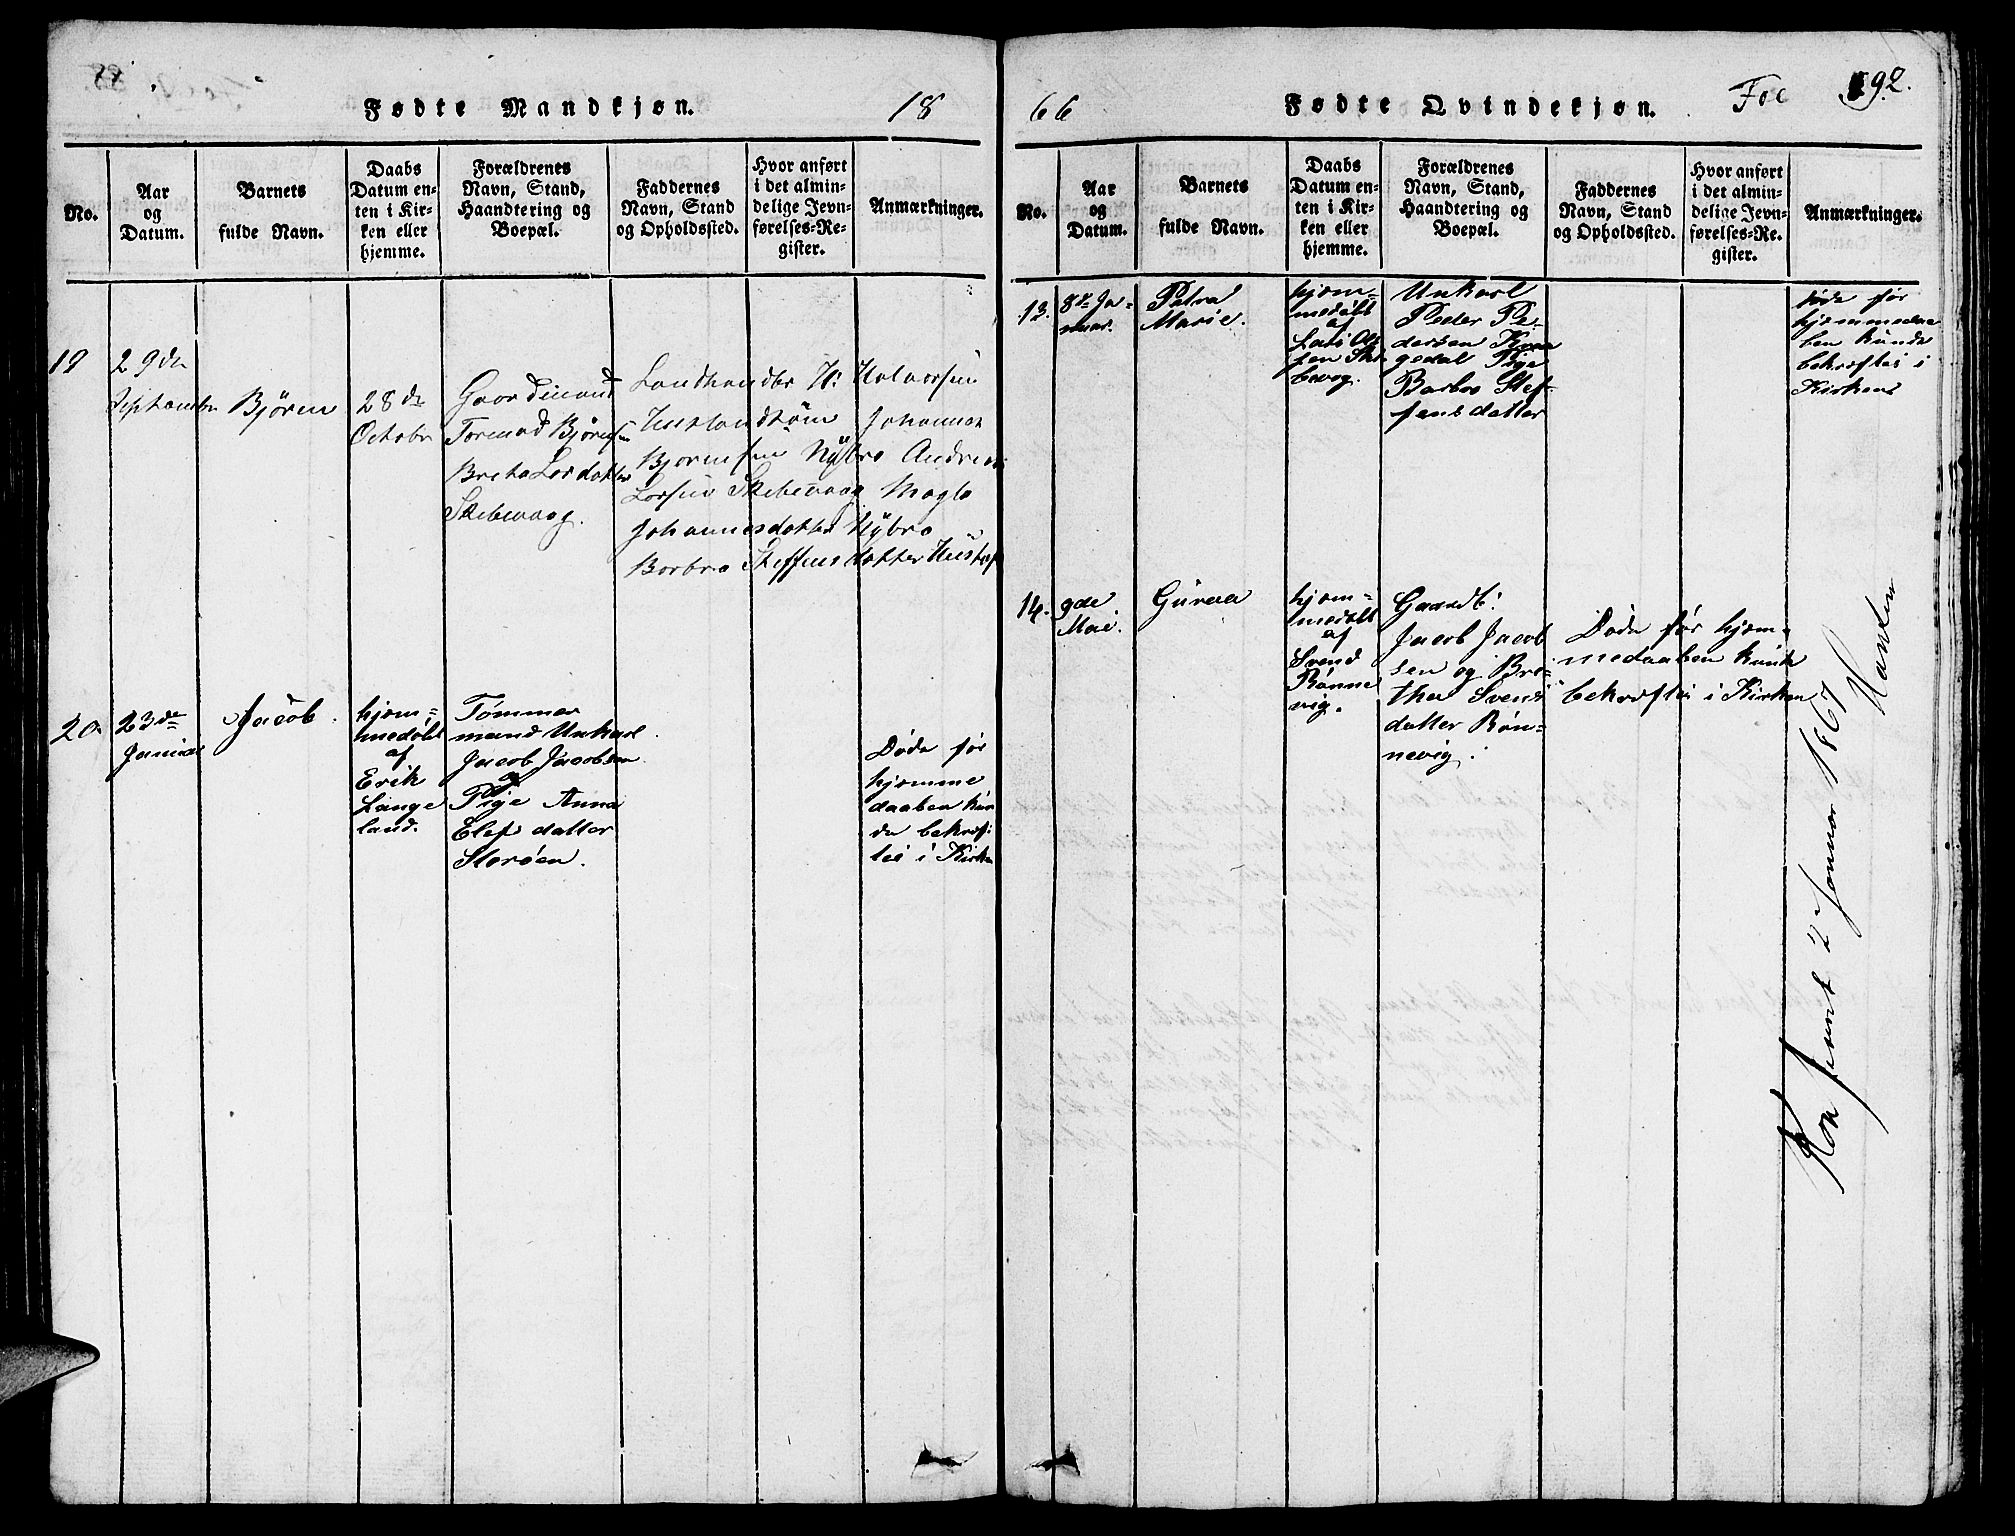 Fødte Mandkjøn.
18
No.
Aar
og
Datum.
Barnets
fulde Navn.
Daabs
Datum en-
ten i Kir-
ken eller
hjemme.
Forældrenes
Navn, Stand,
Haandtering og
Boepæl.
Faddernes
Navn, Stand
og Opholdssted.
Hvor anført
i det almin-
delige Jevn-
førelses-Re-
gister.
Anmærkninger.
19
29de
Septembr
Björen
28de
Octobr
Tormod Björnsen
Breta Lardatter
Skibevaag.
Johannes
Nÿbro Andreas
Larsen Skibevaag Magla
Johannesdatter Nÿbro
Borbra Steffensdatter
20
23de
Januar
Jacob.
hjem-
medöbt
af
Erik
Lange
land.
Tömmer
mand Unkarl
Jacob Jacobsen
og
Pige Anna
Elefsdatter
Storöen.
Döde för
hjemme
daaben kun
de bekræf-
tes i Kirken
66
Fødte Qvindekjøn.
Fol
192.
No.
Aar
og
Datum.
Barnets
fulde Navn.
Daabs
Datum en-
ten i Kir-
ken eller
hjemme.
Forældrenes
Navn, Stand,
Haandtering og
Boepæl.
Faddernes
Navn, Stand
og Opholdssted.
Hvor anført
i det almin-
delige Jevn-
førelses-Re-
gister.
Anmærkninger.
13.
8de Ja-
nuar.
Petra
Marie.
hjem-
medöbt
af
Lars Ol-
sen Ski
bevog.
Unkarl
Peder Pe-
dersen
gedal Pige
Barbro Stef-
fensdatter
döde för
hjemmedaa
ben kunde
bekræftes i
Kirken
14.
9de
Mai.
Guroa
hjem-
medöbt
af
Svend
Rönne
vig.
Gaardb:
Jacob Jacob
sen og Bre-
tha Svends
datter Rön-
nevig.
Döde för hjem-
medaaben kunde
bekræftes i Kirken
Konferert 2 Januar 1867